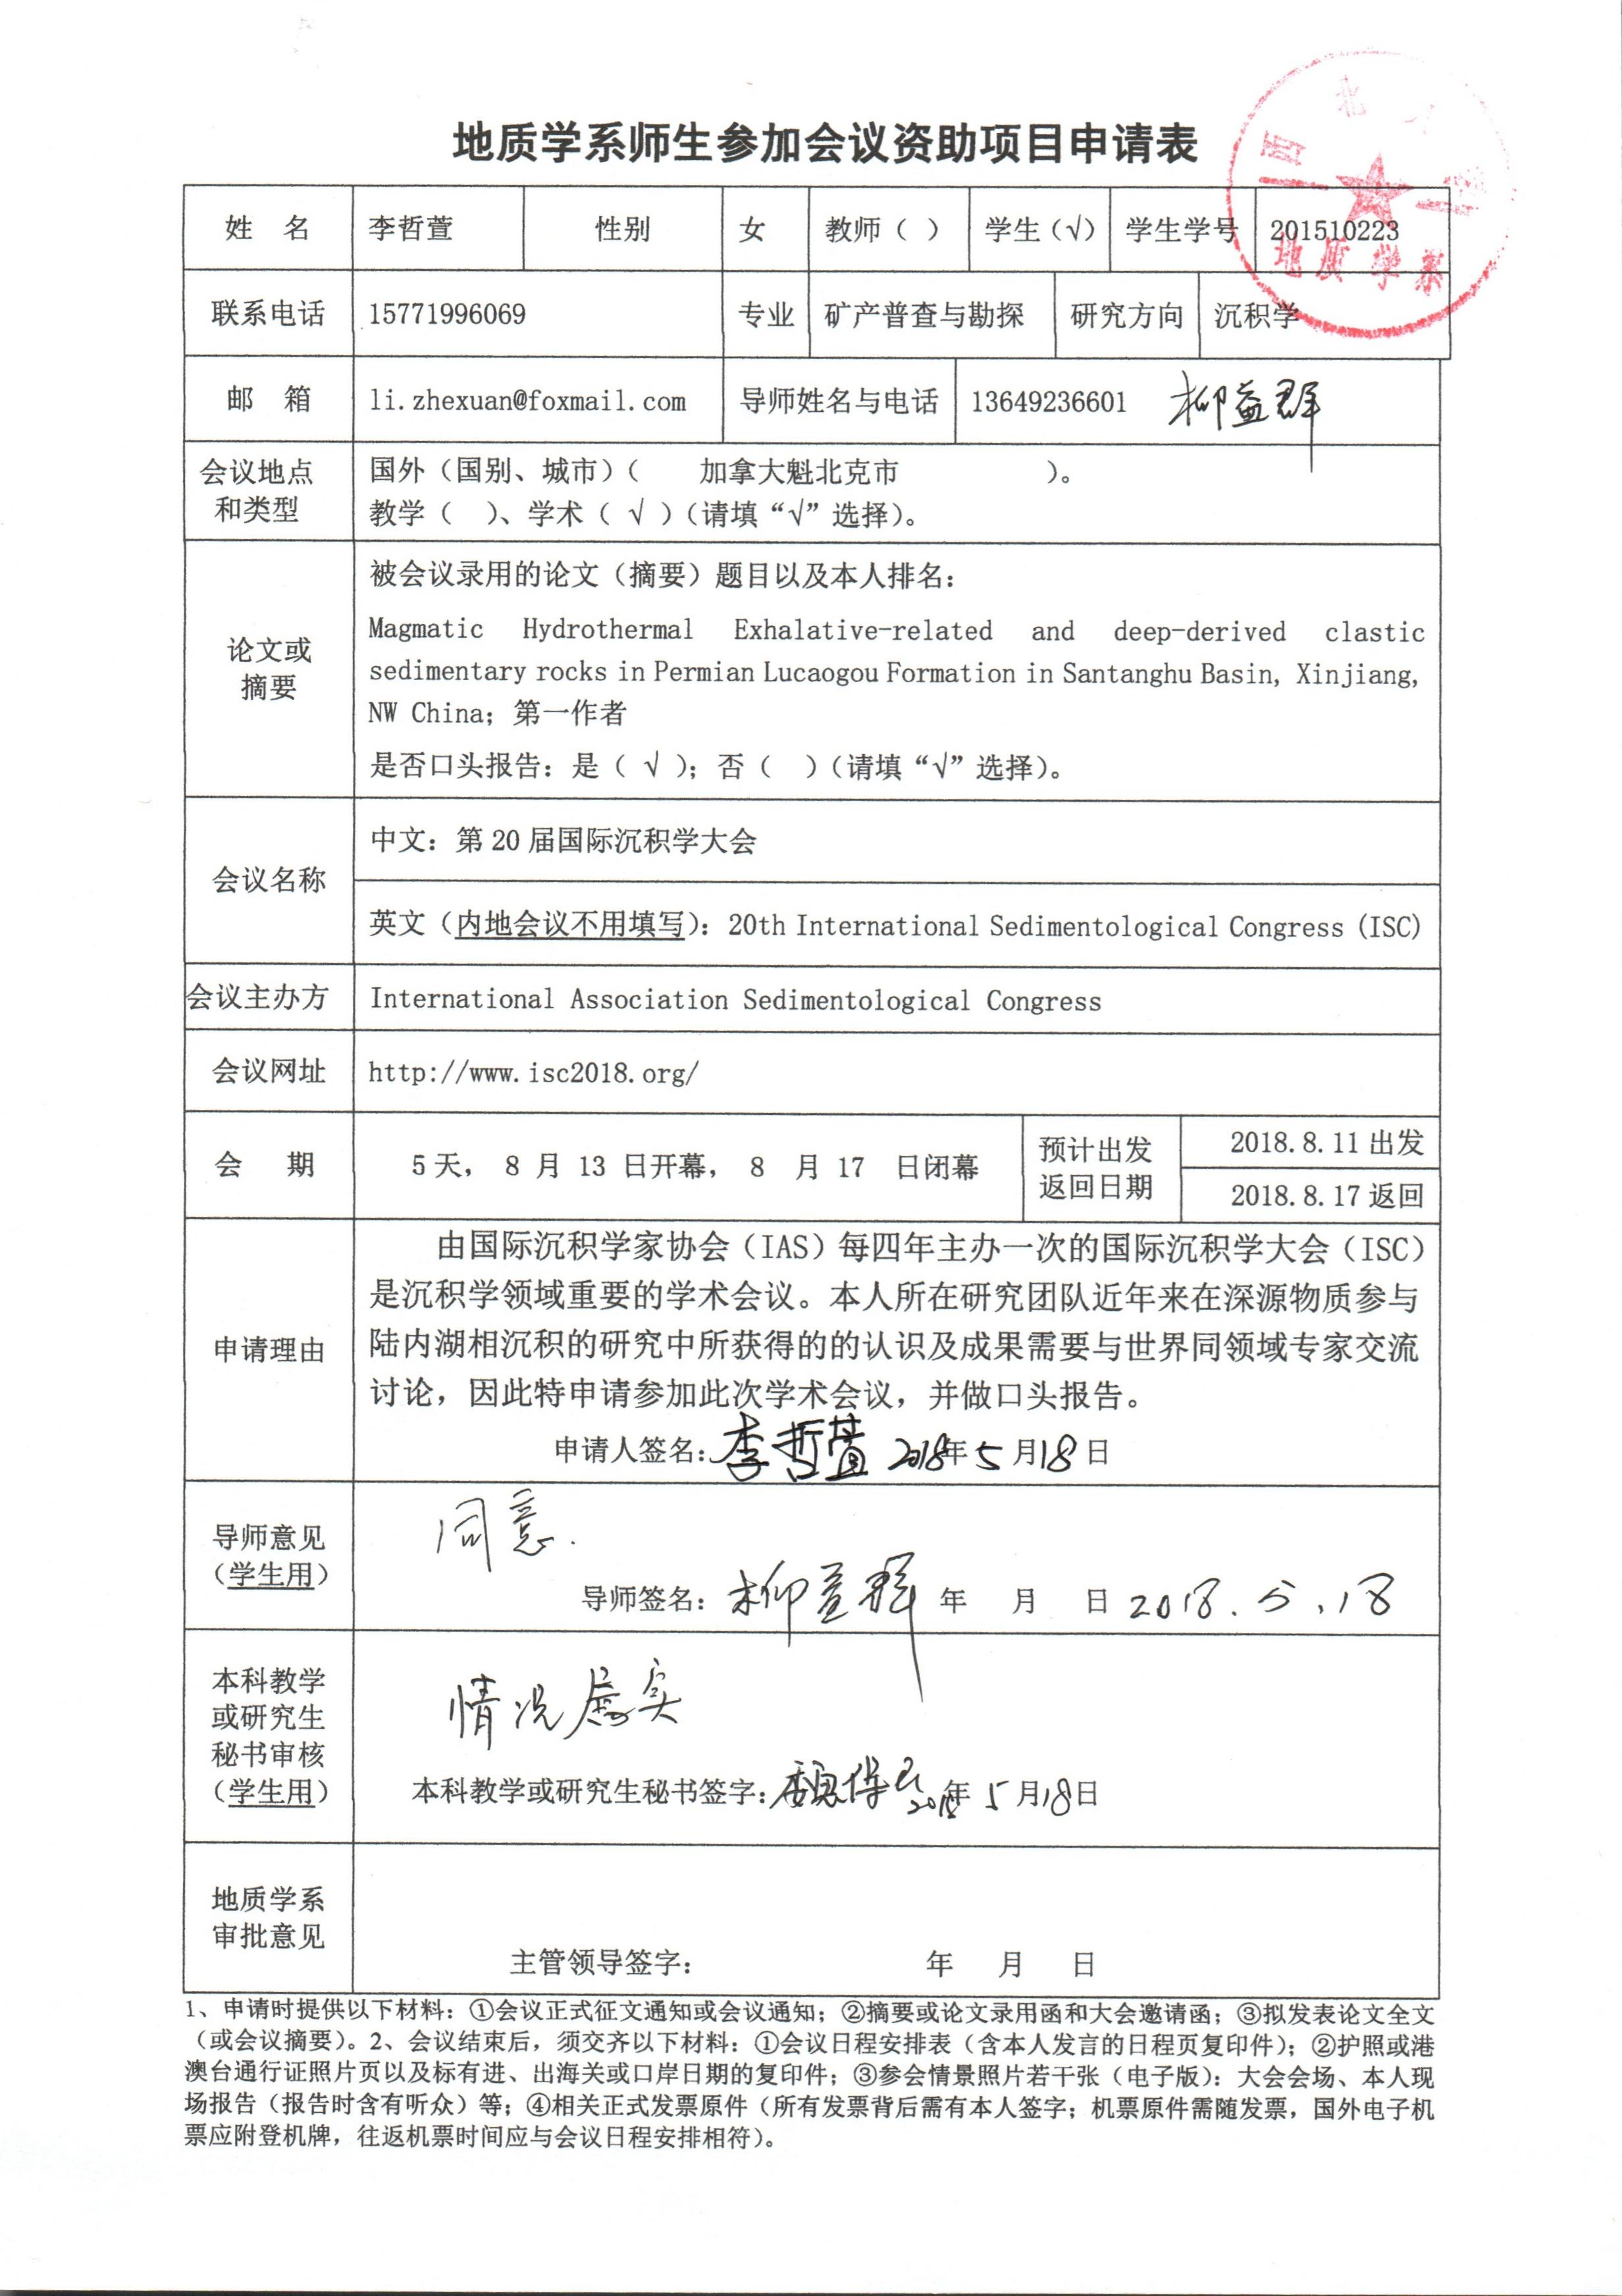 地质学系师生参加会议资助项目申请表
西北大学
地质学系
姓 名 李哲萱 性别 女 教师（ ） 学生（√） 学生学号 201510223
联系电话 15771996069 专业 矿产普查与勘探 研究方向 沉积学
邮 箱 li.zhexuan@foxmail.com 导师姓名与电话 13649236601 柳益群
会议地点
和类型
国外（国别、城市）（ 加拿大魁北克市 ）。
教学（ ）、学术（ √ ）（请填“√”选择）。
论文或
摘要
被会议录用的论文（摘要）题目以及本人排名：
Magmatic Hydrothermal Exhalative-related and deep-derived clastic
sedimentary rocks in Permian Lucaogou Formation in Santanghu Basin, Xinjiang,
NW China；第一作者
是否口头报告：是（ √ ）；否（ ）（请填“√”选择）。
会议名称
中文：第 20 届国际沉积学大会
英文（内地会议不用填写）：20th International Sedimentological Congress (ISC)
会议主办方 International Association Sedimentological Congress
会议网址 http://www.isc2018.org/
会 期 5 天， 8 月 13 日开幕， 8 月 17 日闭幕
预计出发
返回日期
2018.8.11 出发
2018.8.17 返回
申请理由
由国际沉积学家协会（IAS）每四年主办一次的国际沉积学大会（ISC）
是沉积学领域重要的学术会议。本人所在研究团队近年来在深源物质参与
陆内湖相沉积的研究中所获得的的认识及成果需要与世界同领域专家交流
讨论，因此特申请参加此次学术会议，并做口头报告。
申请人签名：李哲萱 2018年 5 月 18 日
导师意见
（学生用）
同意.
导师签名：柳益群 年 月 日 2018.5.18
本科教学
或研究生
秘书审核
（学生用）
情况属实
本科教学或研究生秘书签字： 2018年 5 月 18日
地质学系
审批意见
主管领导签字： 年 月 日
1、申请时提供以下材料：①会议正式征文通知或会议通知；②摘要或论文录用函和大会邀请函；③拟发表论文全文
（或会议摘要）。2、会议结束后，须交齐以下材料：①会议日程安排表（含本人发言的日程页复印件）；②护照或港
澳台通行证照片页以及标有进、出海关或口岸日期的复印件；③参会情景照片若干张（电子版）：大会会场、本人现
场报告（报告时含有听众）等；④相关正式发票原件（所有发票背后需有本人签字；机票原件需随发票，国外电子机
票应附登机牌，往返机票时间应与会议日程安排相符）。